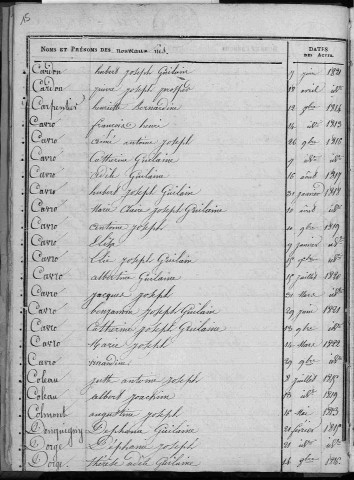 NOMS ET PRÉNOMS DES nouveaux nés. DATES DES ACTES.
Carion hubert Joseph Guilain 7 juin 1821
Carion pierre Joseph prosper 18 avril id.
Carpentier henriette bernardine 12 1814
Cavro francois henri 1813
Cavro aimé antoine Joseph 26 1816
Cavro Catherine Guilaine 7 id.
Cavro Adèle Guilaine 16 aout 1817
Cavro hubert Joseph Guilain 31 janvier 1818
Cavro Marie Claire Joseph Guilaine 10 aout id.
Cavro antoine Joseph 1819
Cavro Elise 9 janvier id.
Cavro Elie Joseph Guilain
Cavro albertine Guilaine 15 juillet 1820
Cavro jacques Joseph Mars id.
Cavro benjamin Joseph Guilain 29 juin 1821
Cavro Catherine Joseph Guilaine id.
Cavro Marie Joseph Mars 1822
Cavro id.
Coleau antoine Joseph juillet
Coleau albert Joachim 1819
Colmont augustin Joseph 16 Mai 1813
Guilaine 21 février
Dorge Stéphanie Joseph id.
Dorge thérèse adèle Guilaine 14